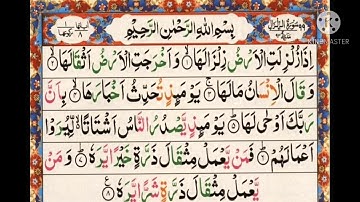 بِسْمِ اللهِ الرَّحْمٰنِ الرَّحِيْمِ
اِذَا زُلْزِلَتِ الْاَرْضُ زِلْزَالَهَا ۙ وَ اَخْرَجَتِ الْاَرْضُ اَثْقَالَهَا ۙ
وَ قَالَ الْاِنْسَانُ مَا لَهَا ۚ يَوْمَىِٕذٍ تُحَدِّثُ اَخْبَارَهَا ۙ بِاَنَّ
رَبَّكَ اَوْحٰى لَهَا ؕ يَوْمَىِٕذٍ يَّصْدُرُ النَّاسُ اَشْتَاتًا ۙ لِّيُرَوْا
اَعْمَالَهُمْ ؕ فَمَنْ يَّعْمَلْ مِثْقَالَ ذَرَّةٍ خَيْرًا يَّرَهٗ ؕ وَ مَنْ
يَّعْمَلْ مِثْقَالَ ذَرَّةٍ شَرًّا يَّرَهٗ
KINEMASTER